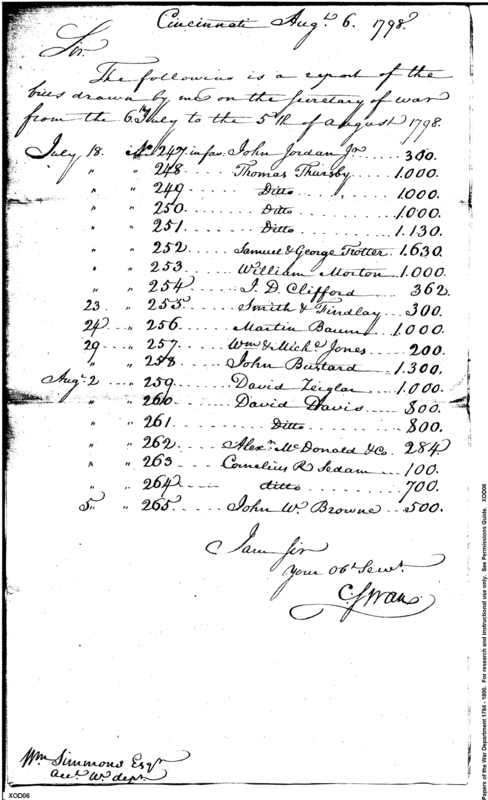 Cincinnati Augt. 6. 1798.
Sir.
The following is a report of the
bills drawn by me on the Secretary of war
from the 6th July to the 5th of august 1798.
July 18. No 247 in fav. John Jordan Jr. 300.
" " 248 Thomas Thursby 1.000.
" " 249 Ditto 1000.
" " 250 Ditto 1.000.
" " 251 Ditto 1.130.
" " 252 Samuel & George Trotter 1.630.
" " 253 William Morton 1.000.
" " 254 J. D. Clifford 362.
23 " 255 Smith & Findlay 300.
24 " 256 Martin Baum 1.000.
29 " 257 Wm & Michl. Jones 200.
" " 258 John Bustard 1.300.
Augt. 2 " 259 David Zeigler 1.000.
" " 260 David Davis 800.
" " 261 Ditto 800.
" " 262 Alexr. McDonald & Co. 284
" " 263 Cornelius R Sedam 100.
" " 264 ditto 700.
5 " 265 John W. Browne 500.
I am Sir
your Obt. Servt.
C. Swan
Wm Simmons Esqr.
acct. Wr dept.
XOD06
Papers of the War Department 1784 - 1800. For research and instructional use only. See Permissions Guide. XOD06